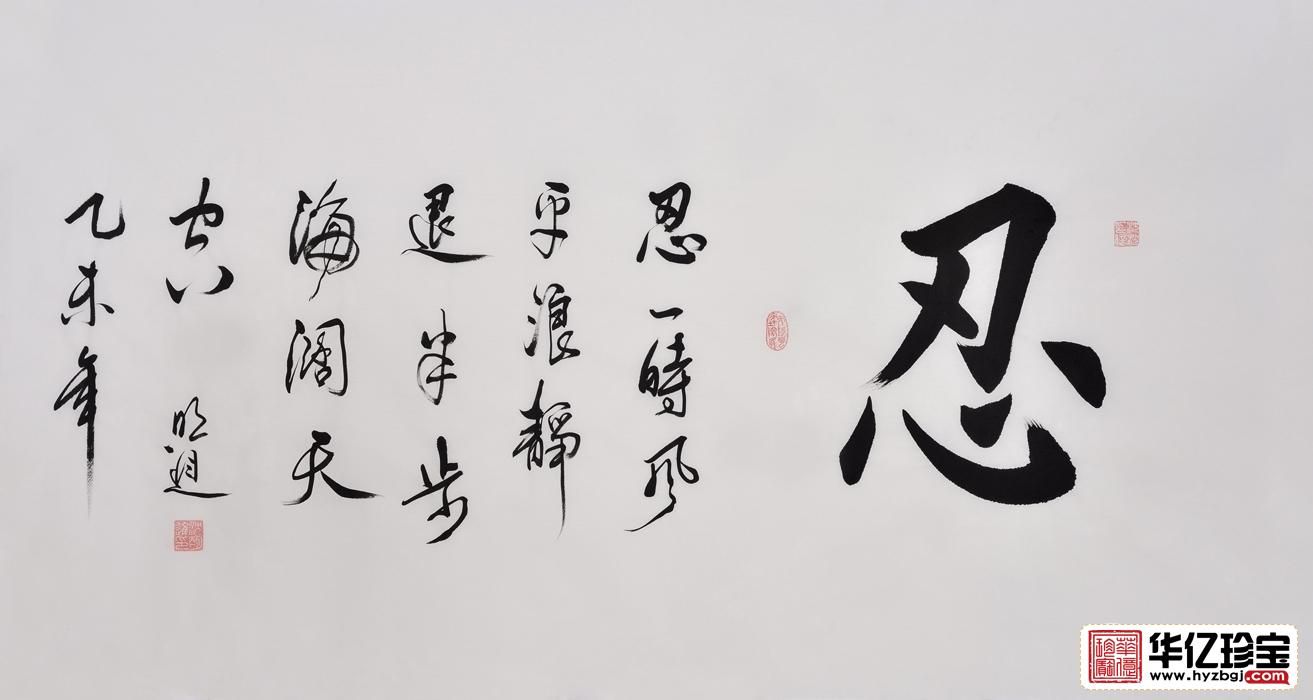 忍
忍一時風
平浪靜
退半步
海阔天
空 明道
乙未年
华亿珍宝
www.hyzbgj.com